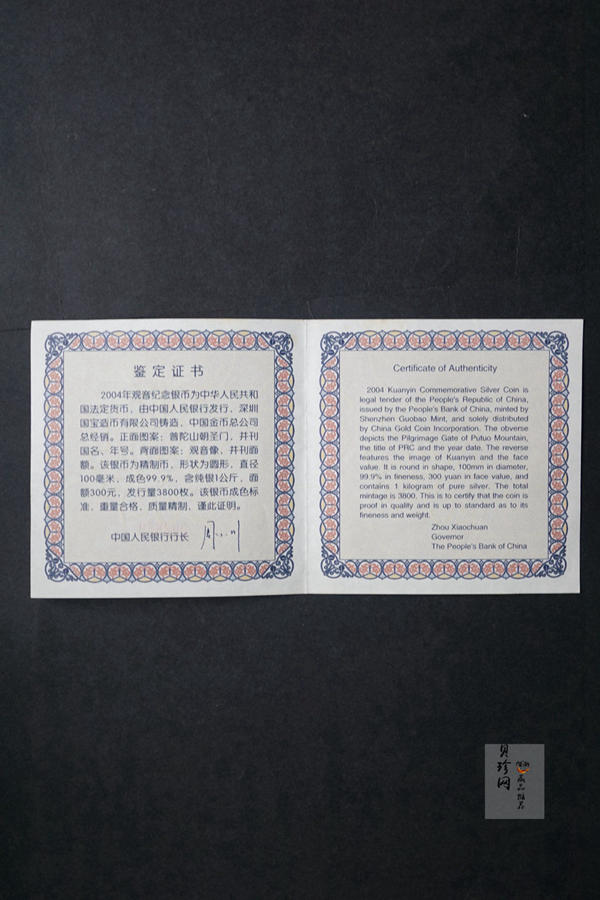 鉴定证书
2004年观音纪念银币为中华人民共和
国法定货币，由中国人民银行发行，深圳
国宝造币有限公司铸造，中国金币总公司
总经销。正面图案：普陀山朝圣门，并刊
国名、年号。背面图案：观音像，并刊面
额。该银币为精制币，形状为圆形，直径
100毫米，成色99.9%，含纯银1公斤，面
额300元，发行量3800枚。该银币成色标
准，重量合格，质量精制，谨此证明。
中国人民银行行长 周小川
Certificate of Authenticity
2004 Kuanyin Commemorative Silver Coin is
legal tender of the People's Republic of China,
issued by the People's Bank of China, minted by
Shenzhen Guobao Mint, and solely distributed
by China Gold Coin Incorporation. The obverse
depicts the Pilgrimage Gate of Putuo Mountain,
the title of PRC and the year date. The reverse
features the image of Kuanyin and the face
value. It is round in shape, 100mm in diameter,
99.9% in fineness, 300 yuan in face value, and
contains 1 kilogram of pure silver. The total
mintage is 3800. This is to certify that the coin is
proof in quality and is up to standard as to its
fineness and weight.
Zhou Xiaochuan
Governor
The People's Bank of China
贝珍网
藏品推荐